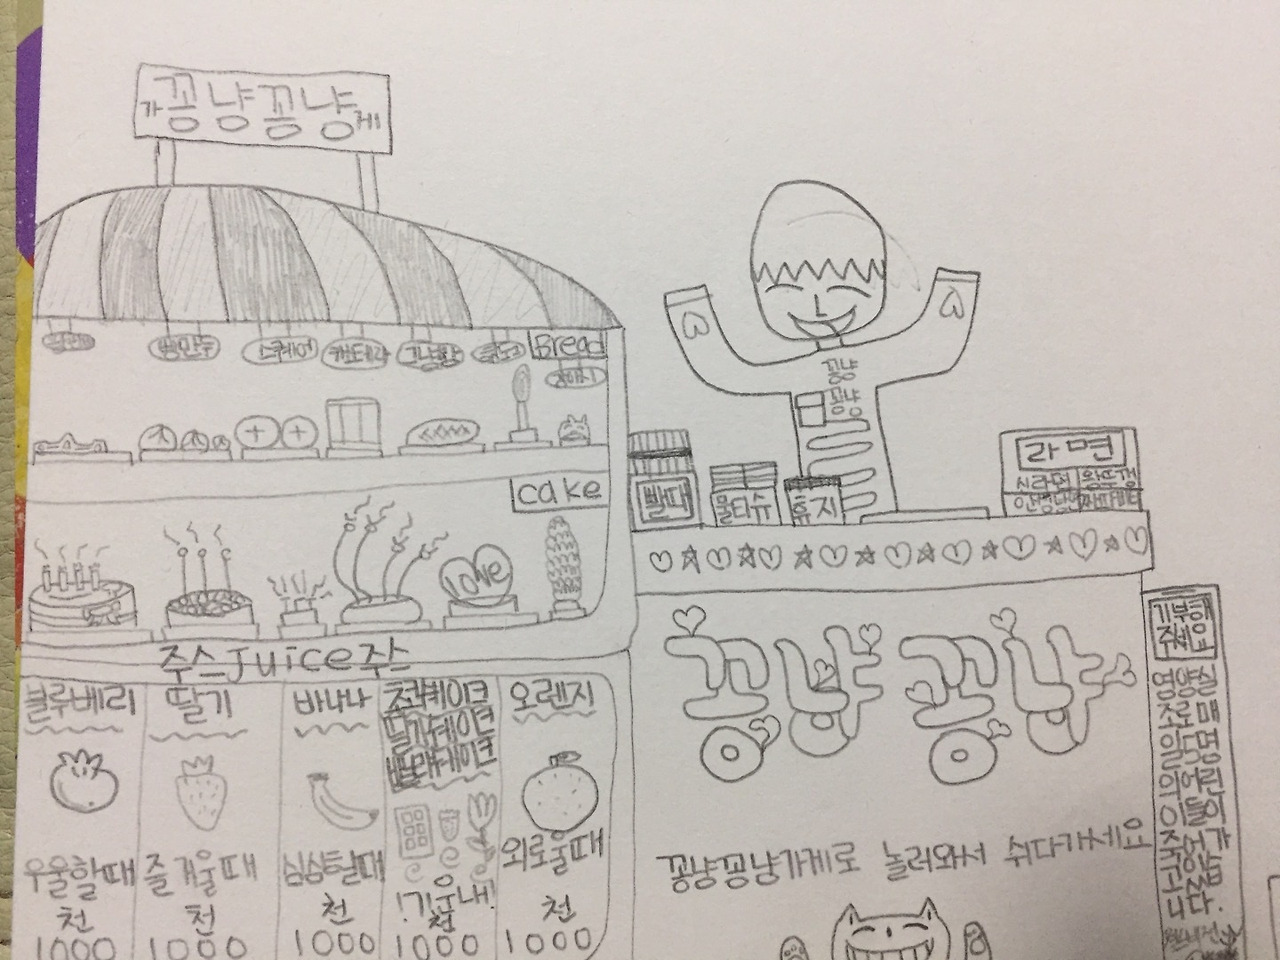 가꽁냥꽁냥게
스퀘어
카스테라
Bread
cake
LOVE
주스Juice주스
블루베리
우울할때
천
1000
딸기
즐거울때
천
1000
바나나
심심할때
천
1000
초코쉐이크
딸기쉐이크
바닐라쉐이크
!기운내!
천
1000
오렌지
외로울때
천
1000
꽁냥
꽁냥
빨대
물티슈
휴지
라면
진라면
왕뚜껑
꽁냥꽁냥
꽁냥꽁냥가게로 놀러와서 쉬다가세요
기부해
주세요
영양실
조로매
일
의어린
이들이
죽어가
고있습
니다.